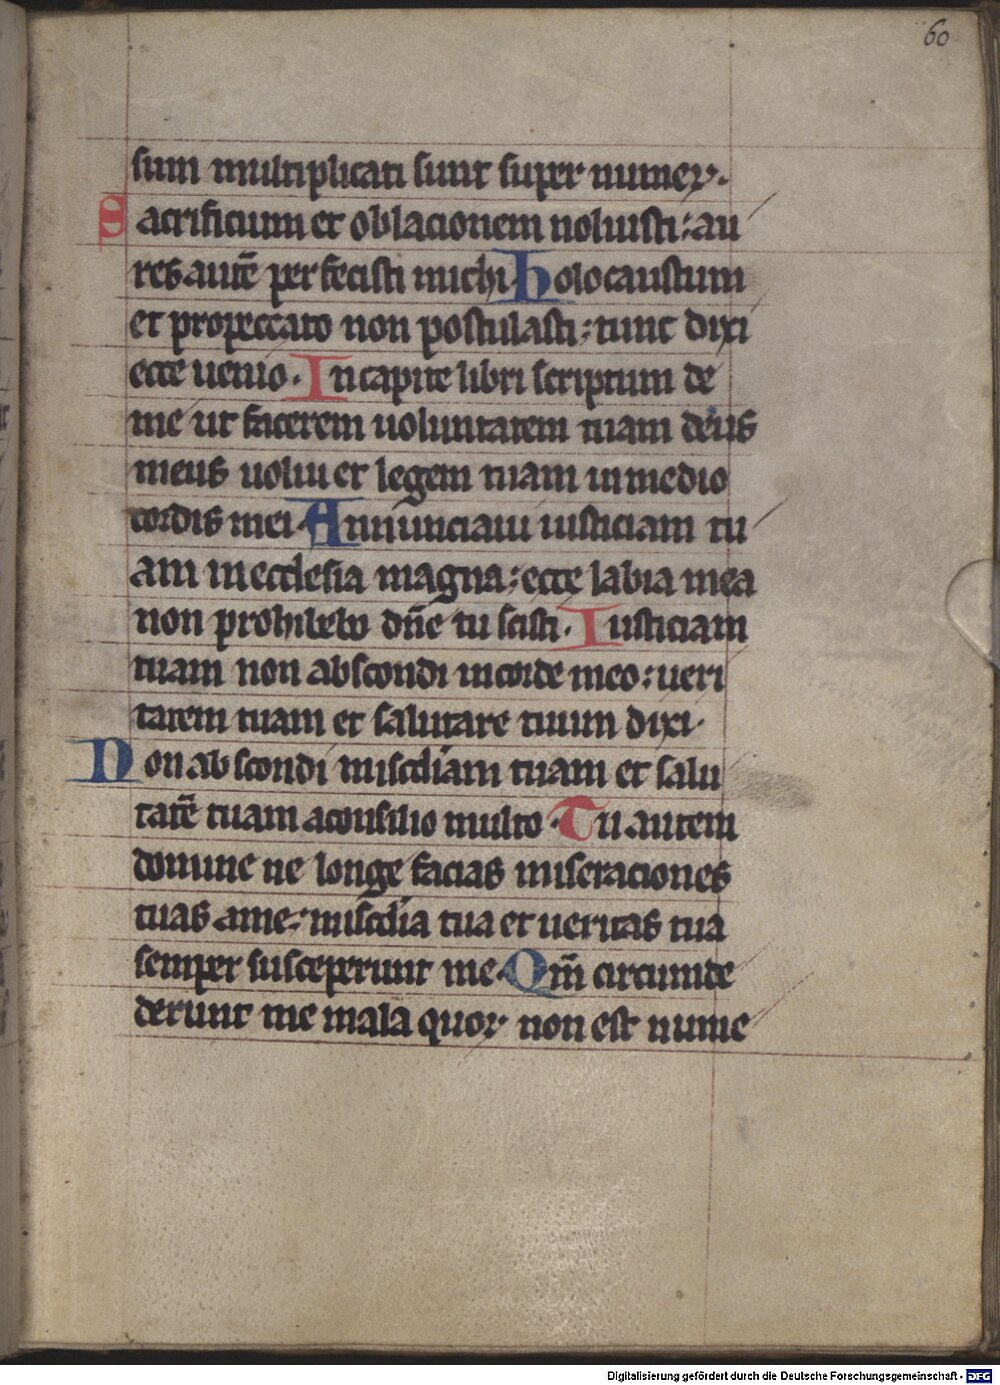 60
sum multiplicati sunt super numeꝝ.
Sacrificium et oblacionem noluisti: au
res autē perfecisti michi Holocaustum
et propeccato non postulasti: tunc dixi
ecce uenio. In capite libri scriptum de
me ut facerem uoluntatem tuam deus
meus uolui et legem tuam in medio
cordis mei Annunciaui iusticiam tu
am in ecclesia magna: ecce labia mea
non prohibebo dn̄e tu scisti. Iusticiam
tuam non abscondi in corde meo: ueri
tatem tuam et salutare tuum dixi.
Non abscondi misc̄diam tuam et salu
tarē tuam aconsilio multo. Tu autem
domine ne longe facias miseraciones
tuas ame: misc̄dia tua et ueritas tua
semper susceperunt me. Qm̄ circumde
derunt me mala quoꝝ non est nume
Digitalisierung gefördert durch die Deutsche Forschungsgemeinschaft - DFG